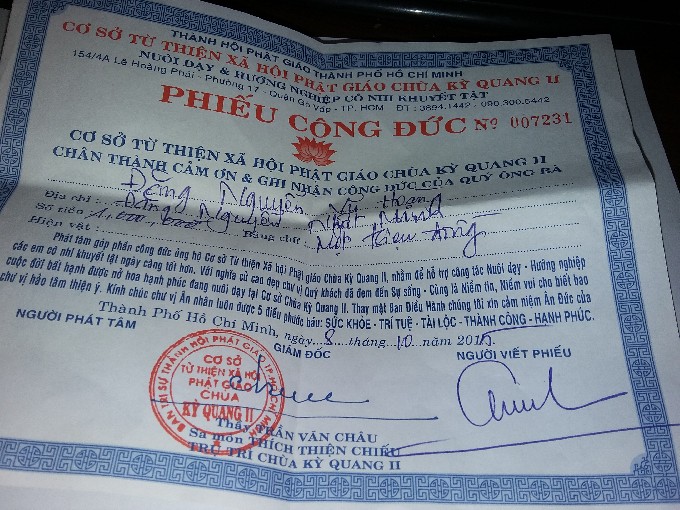 THÀNH HỘI PHẬT GIÁO THÀNH PHỐ HỒ CHÍ MINH
CƠ SỞ TỪ THIỆN XÃ HỘI PHẬT GIÁO CHÙA KỲ QUANG II
NUÔI DẠY & HƯỚNG NGHIỆP CÔ NHI KHUYẾT TẬT
154/4A Lê Hoàng Phái - Phường 17 - Quận Gò Vấp - TP. HCM ĐT : 3894.1442 - 090.300.6442
PHIẾU CÔNG ĐỨC № 007231
CƠ SỞ TỪ THIỆN XÃ HỘI PHẬT GIÁO CHÙA KỲ QUANG II
CHÂN THÀNH CẢM ƠN & GHI NHẬN CÔNG ĐỨC CỦA QUÝ ÔNG BÀ
Đặng Nguyên Vũ
Địa chỉ : Đặng Nguyên Nhật Minh
Số tiền : 1,000,000 Bằng chữ : Một triệu đồng
Hiện vật :
Phát tâm góp phần công đức ủng hộ Cơ Sở Từ Thiện Xã Hội Phật giáo Chùa Kỳ Quang II, nhằm để hỗ trợ công tác Nuôi dạy - Hướng nghiệp
các em cô nhi khuyết tật ngày càng tốt hơn. Với nghĩa cử cao đẹp chư vị Quý khách đã đem đến Sự sống - Cùng là Niềm tin, Niềm vui cho biết bao
cuộc đời bất hạnh được nở hoa hạnh phúc đang nuôi dạy tại Cơ Sở Chùa Kỳ Quang II. Thay mặt Ban Điều Hành chúng tôi xin cảm niệm Ân Đức của
chư vị hảo tâm thiện ý. Kính chúc chư vị Ân nhân luôn được 5 điều phước báu: SỨC KHỎE - TRÍ TUỆ - TÀI LỘC - THÀNH CÔNG - HẠNH PHÚC.
Thành Phố Hồ Chí Minh, ngày 8 tháng 10 năm 201
NGƯỜI PHÁT TÂM GIÁM ĐỐC NGƯỜI VIẾT PHIẾU
BAN TRỊ SỰ THÀNH HỘI PHẬT GIÁO TP. HỒ CHÍ MINH
CƠ SỞ
TỪ THIỆN XÃ HỘI
PHẬT GIÁO
CHÙA
KỲ QUANG II
Thầy TRẦN VĂN CHÂU
Sa môn THÍCH THIỆN CHIẾU
TRỤ TRÌ CHÙA KỲ QUANG II